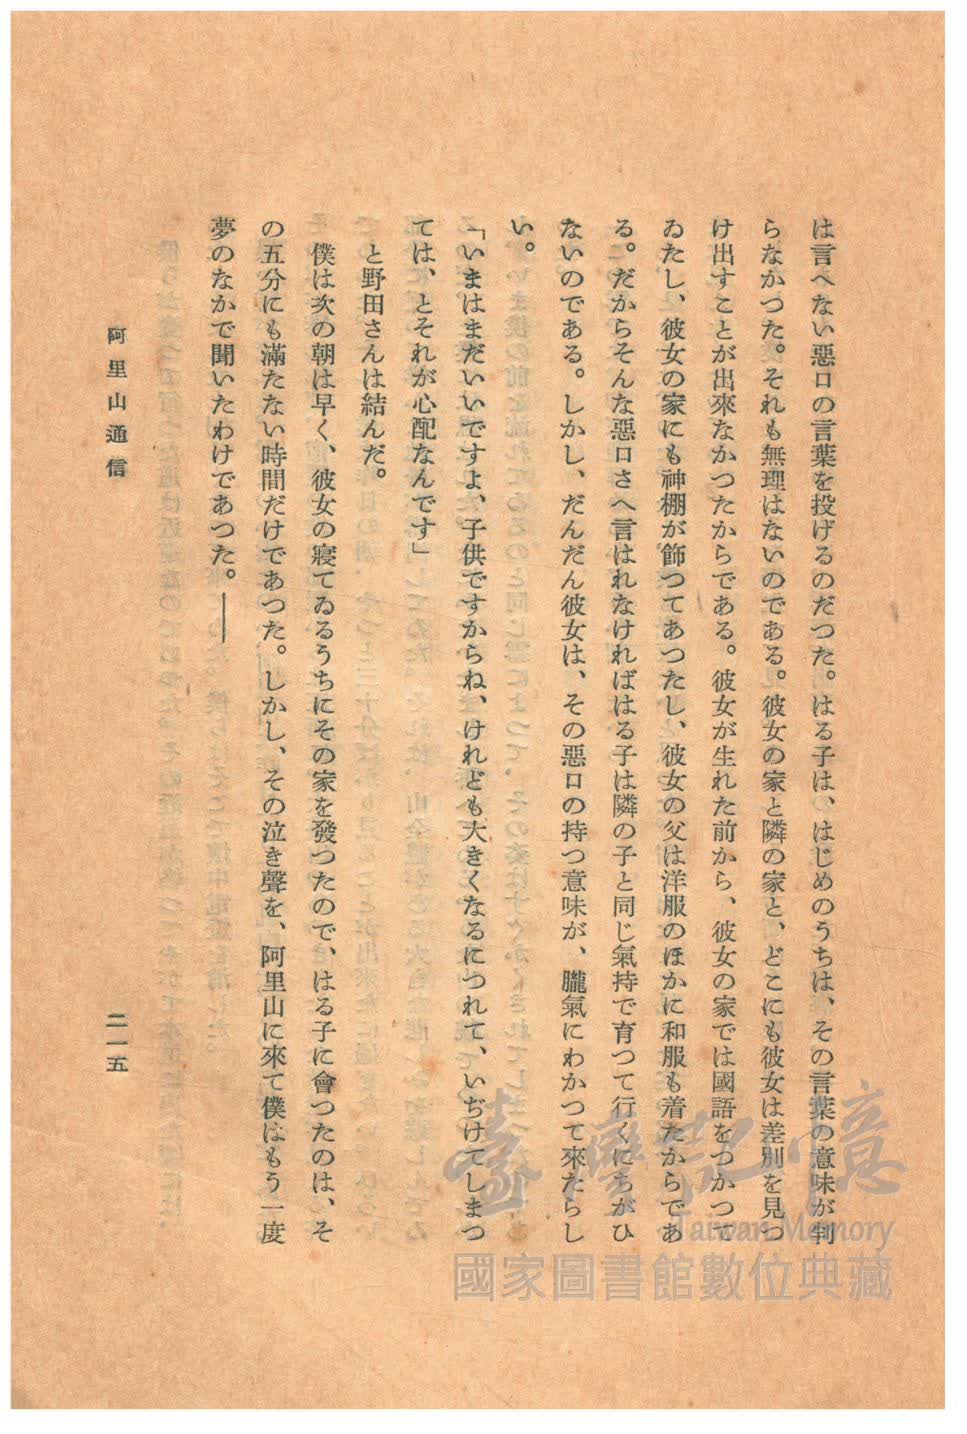 は言へない惡口の言葉を投げるのだつた。はる子は、はじめのうちは、その言葉の意味が判
らなかつた。それも無理はないのである。彼女の家と隣の家と、どこにも彼女は差別を見つ
け出すことが出來なかつたからである。彼女が生れた前から、彼女の家では國語をつかつて
ゐたし、彼女の家にも神棚が飾つてあつたし、彼女の父は洋服のほかに和服も着たからであ
る。だからそんな惡口さへ言はれなければはる子は隣の子と同じ氣持で育つて行くにちがひ
ないのである。しかし、だんだん彼女は、その惡口の持つ意味が、朧氣にわかつて來たらし
い。
「いまはまだいいですよ、子供ですからね、けれども大きくなるにつれて、いぢけてしまつ
ては、とそれが心配なんです」
と野田さんは結んだ。
僕は次の朝は早く、彼女の寢てゐるうちにその家を發つたので、はる子に會つたのは、そ
の五分にも滿たない時間だけであつた。しかし、その泣き聲を、阿里山に來て僕はもう一度
夢のなかで聞いたわけであつた。――
阿里山通信
二一五
臺灣記憶
Taiwan Memory
國家圖書館數位典藏